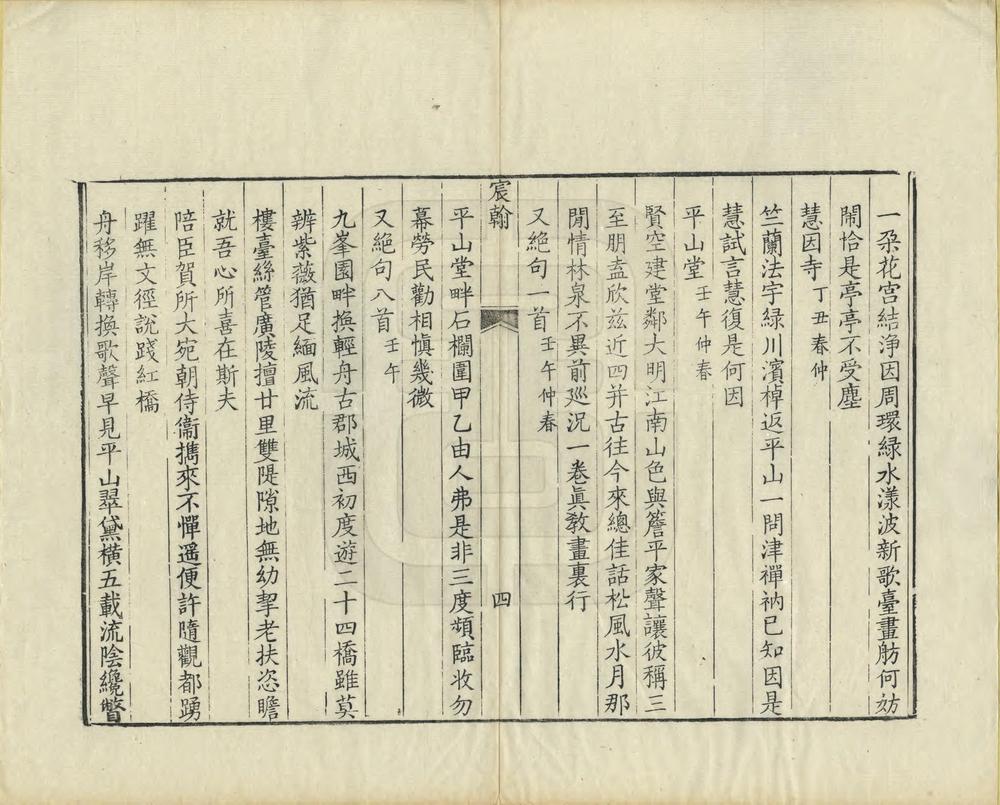 一朶花宮結淨因周環綠水漾波新歌臺畫舫何妨
閙恰是亭亭不受塵
慧因寺丁丑春仲
竺蘭法宇綠川濱棹返平山一問津禪衲已知因是
慧試言慧復是何因
平山堂壬午仲春
賢空建堂鄰大明江南山色與簷平家聲讓彼稱三
至朋盍欣茲近四并古往今來總佳話松風水月那
閒情林泉不異前廵況一卷眞教畫裏行
又絕句一首壬午仲春
宸翰
四
平山堂畔石欄圍甲乙由人弗是非三度頻臨收勿
幕勞民勸相愼幾微
又絕句八首壬午
九峯園畔換輕舟古郡城西初度遊二十四橋雖莫
辨紫薇猶足緬風流
樓臺絲管廣陵擅廿里雙隄隙地無幼挈老扶恣瞻
就吾心所喜在斯夫
陪臣賀朔大宛朝侍衞擕來不憚遥便許隨觀都踴
躍無文徑說踐紅橋
舟移岸轉換歌聲早見平山翠黛橫五載流陰纔瞥